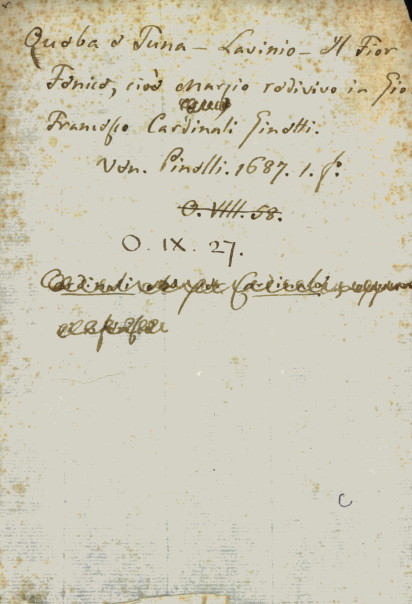 Queba e Tuna – Lavinio – Il Fior
Fenice, cioè Marzio redivivo in Gio
Francesco Cardinali Ginetti.
Ven. Pinelli. 1687. 1. f.
O. VIII. 58.
O. IX. 27.
Cardinali Cardinali
C